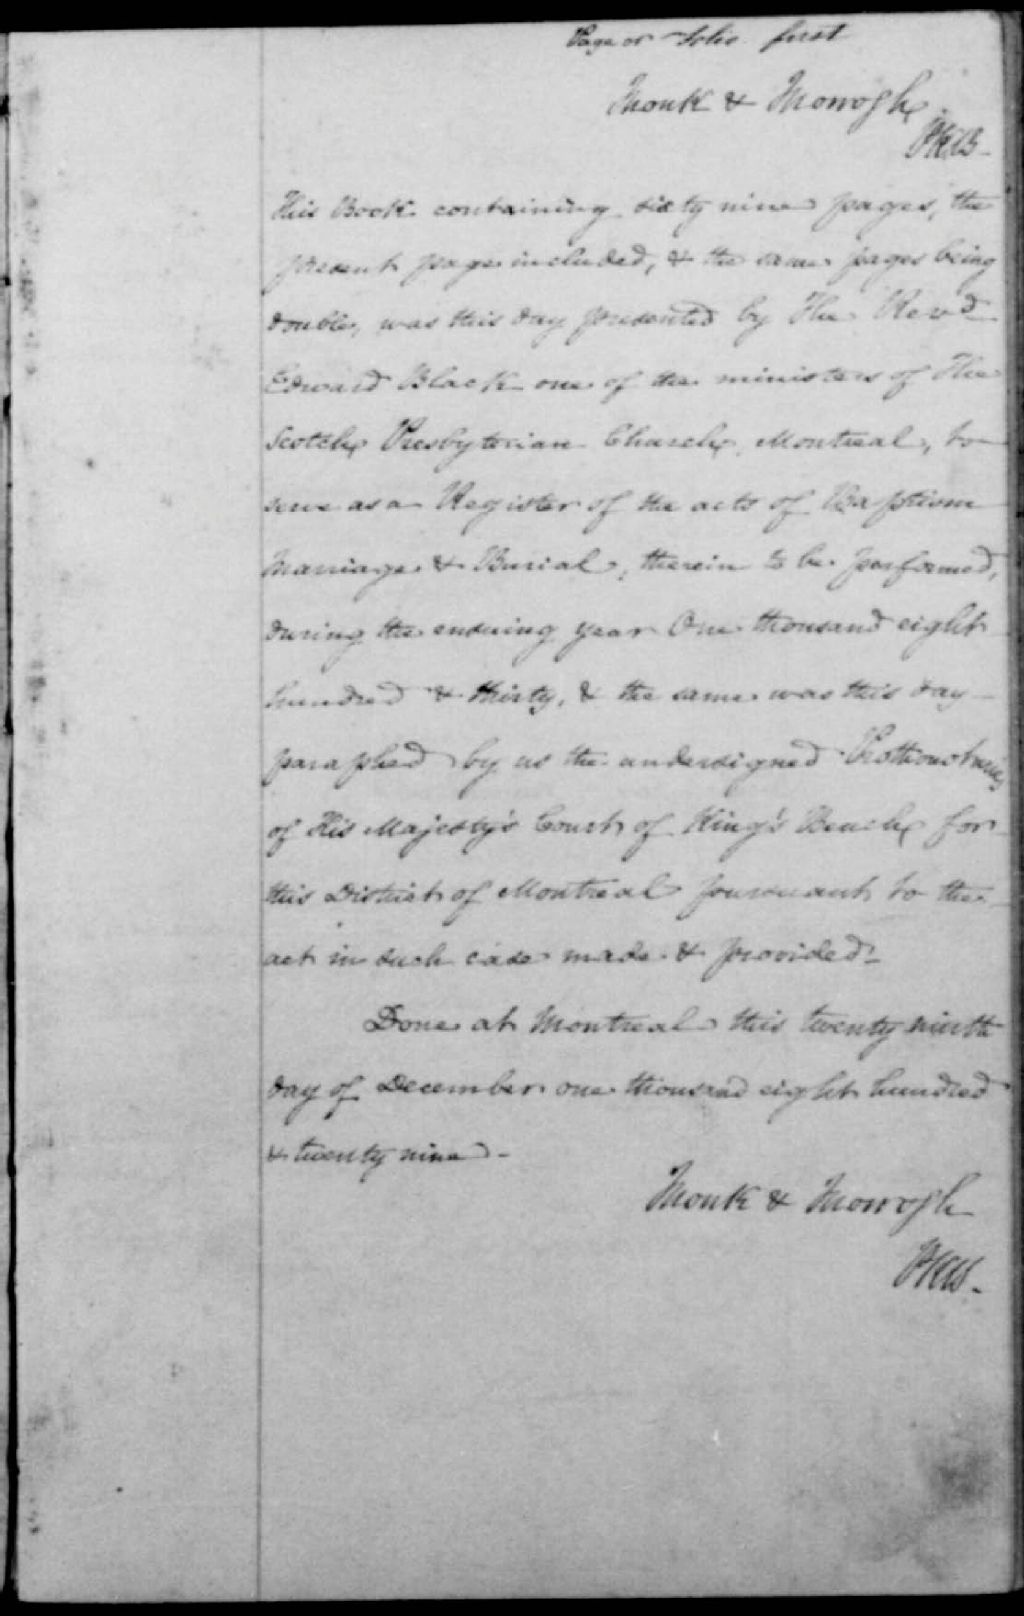 Page or Folio first
Monk & Morrogh
PKB
This Book containing sixty nine pages, the
present page included, & the same pages being
double, was this day presented by The Revd
Edward Black one of the ministers of The
Scotch Presbyterian Church, Montreal, to
serve as a Register of the acts of Baptism
Marriage & Burial, therein to be performed,
during the ensuing year One thousand eight
hundred & thirty, & the same was this day
paraphed by us the undersigned Prothonotaries
of His Majesty's Court of King's Bench for
this District of Montreal pursuant to the
act in such case made & provided-
Done at Montreal this twenty ninth
day of December one thousand eight hundred
& twenty nine -
Monk & Morrogh
PKB.